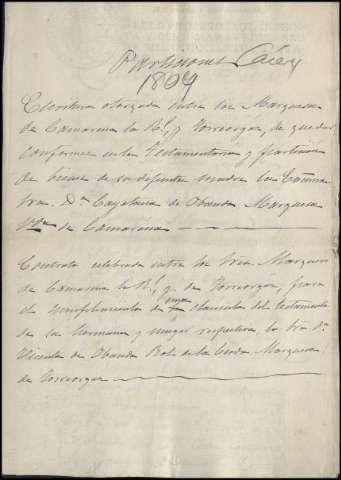 Particiones Cácers
1809
Escritura otorgada entre los Marqueses
de Camarena la Rl. y Torreorgaz, de quedar
conformes en la Testamentaria y particion
de bienes de su difunta madre la Excma
Sra. Dª Cayetana de Ovando Marquesa
de Camarena
Contrato celebrado entre los Sres. Marqueses
de Camarena la Rl. y de Torreorgaz, para
el cumplimiento de una clausula del testamento
de su hermana y muger respectiva la Sra Dª
Vicenta de Obando Rol de la Cerda Marquesa
de Torreorgaz